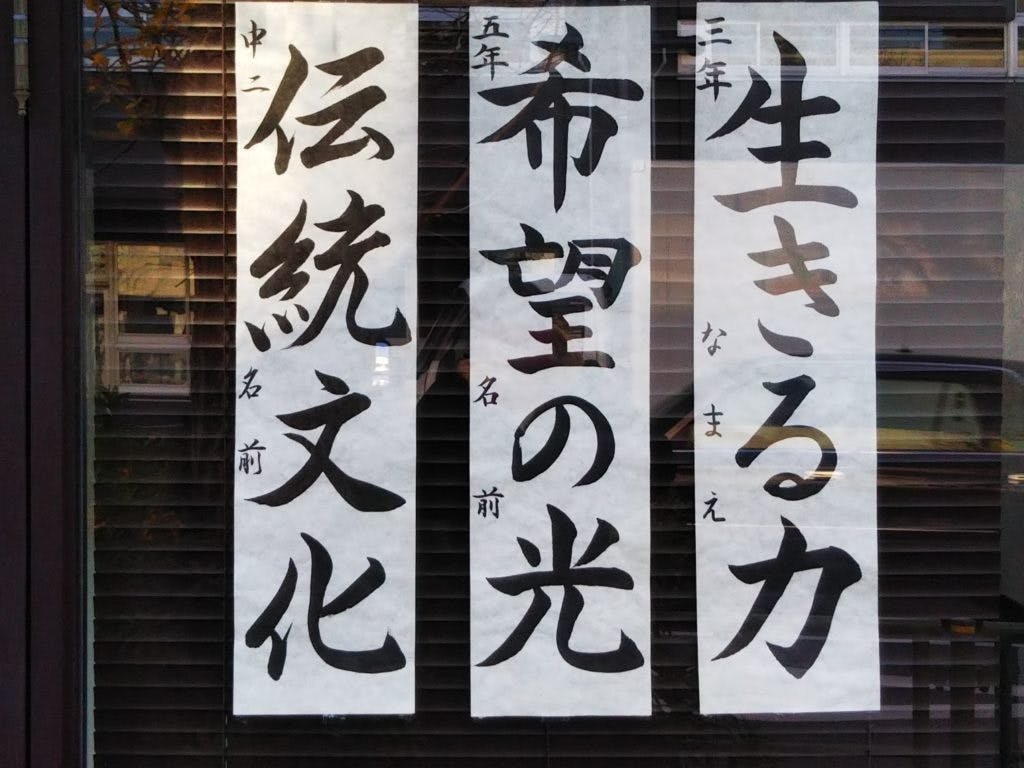 三年
生きる力
なまえ
五年
希望の光
名前
中二
伝統文化
名前